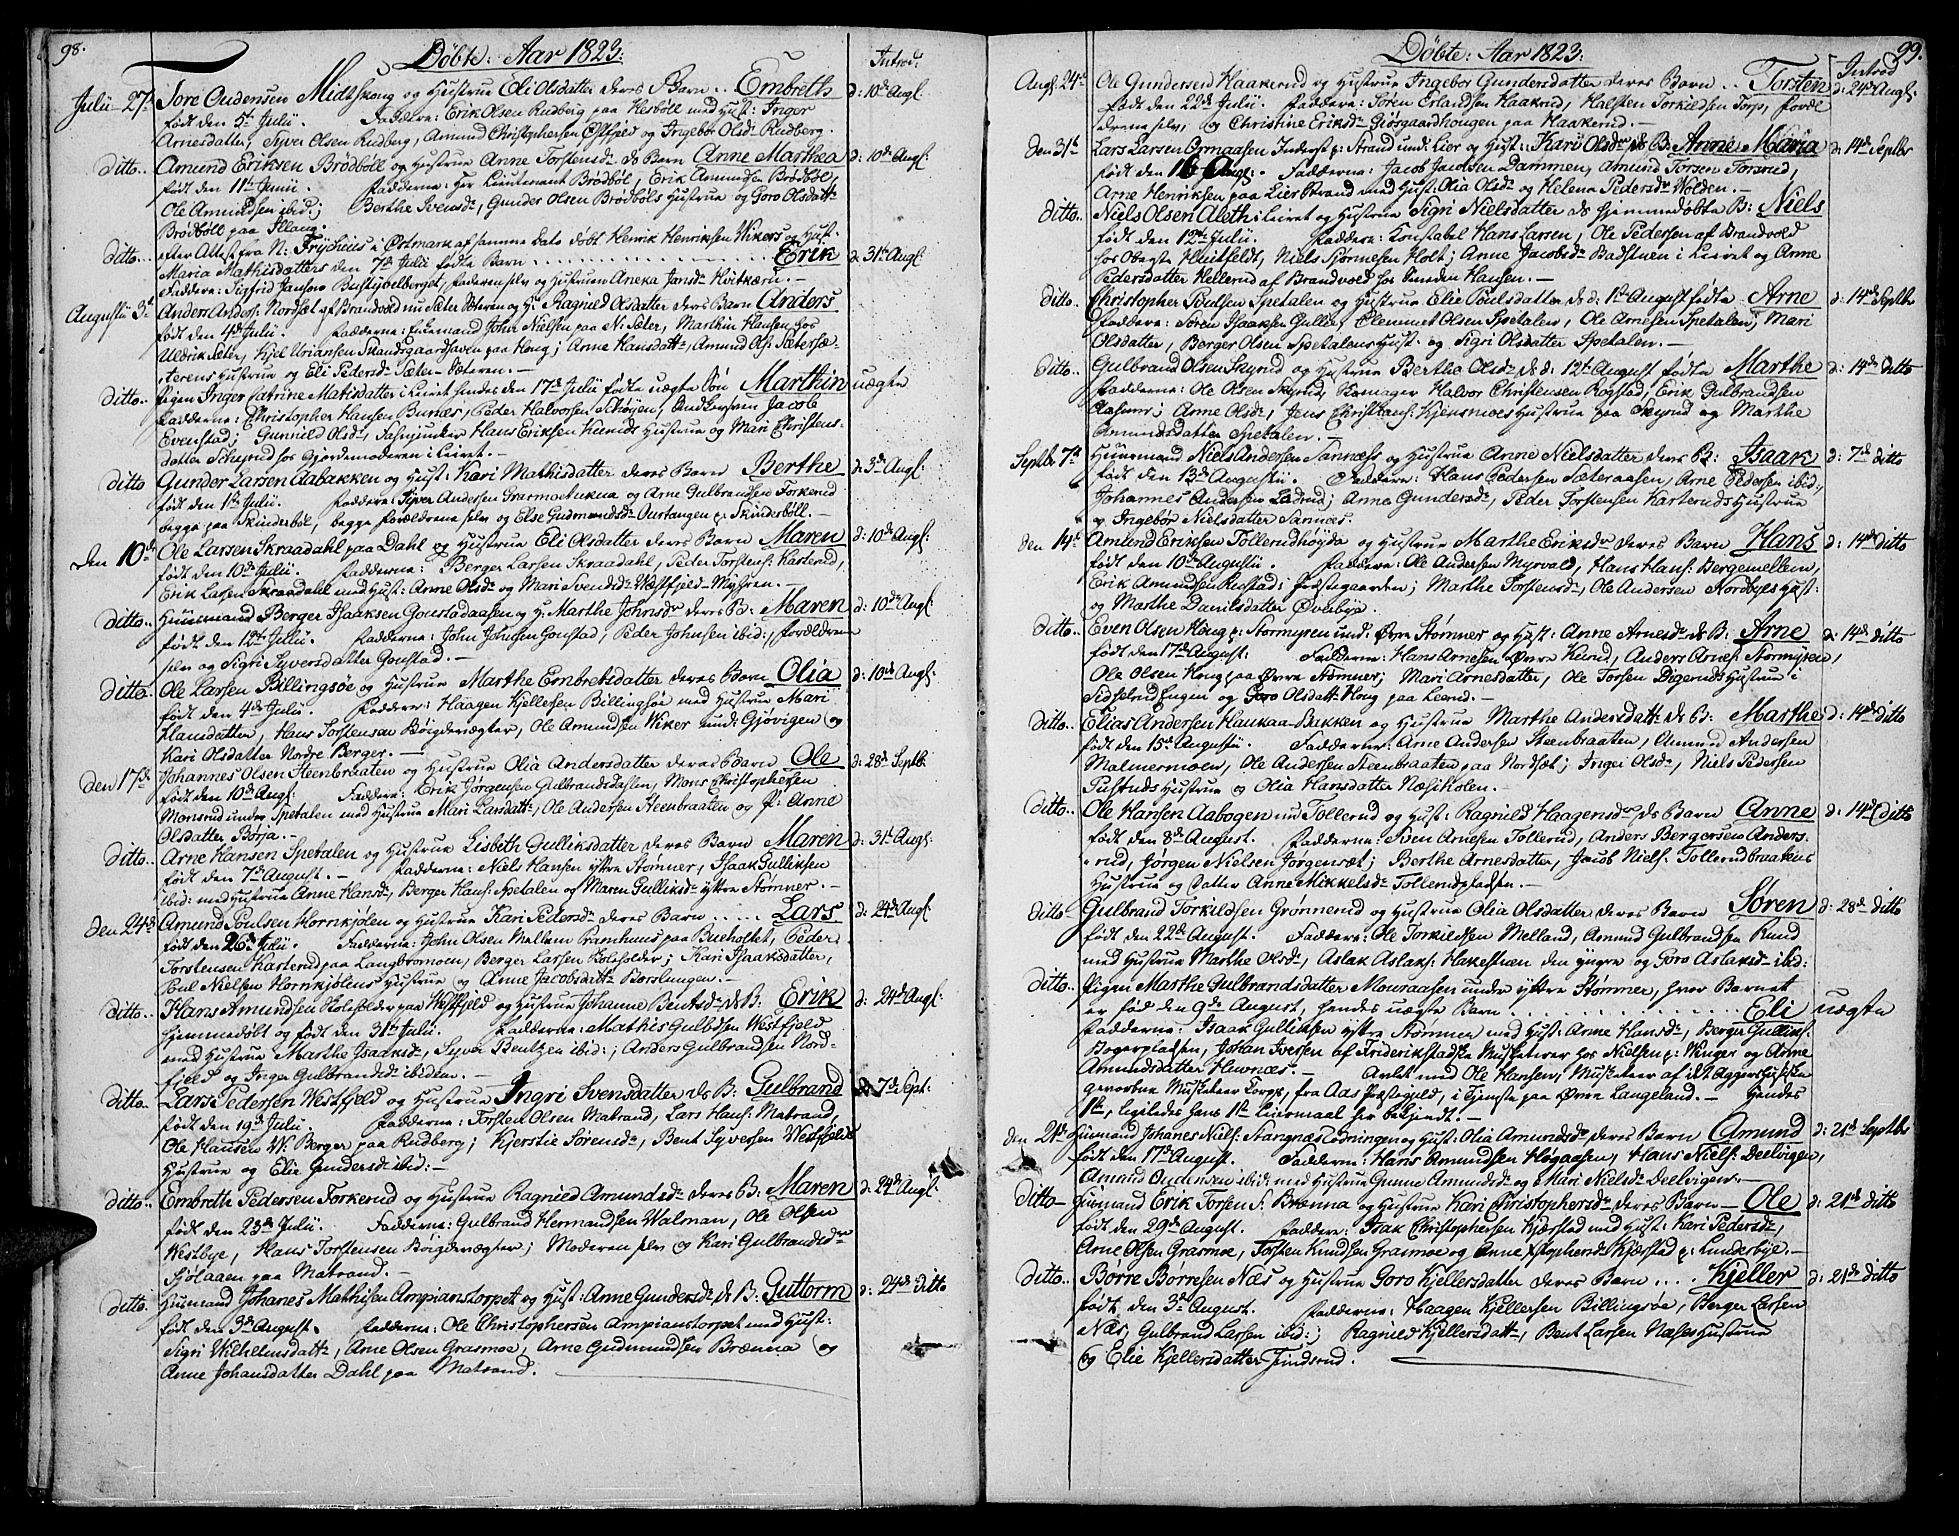 98.
Döbte: Aar 1823:
Introd:
Julii 27de Tore Oudensen Midtskong og Hustrue Eli Olsdatter deres Barn .. Embreth d: 10de Augl:
født den 5te Julii. Fadderne: Erik Olsen Rudberg paa Hesböl med Hust: Inger
Arnesdatter, Syver Olsen Rudberg, Amund Christophersen Østfjeld og Ingebor Olsdr Rudberg.
ditto.. Amund Eriksen Brödböll og Hustrue Anne Torstensdr ds Barn Anne Marthea d: 10de Augl:
født den 11te Junii. Fadderne: Herr Lieutenant Brödböl, Erik Amundsen Brödböl,
Ole Amundsen ibid:; Berthe Svensdr, Gunder Olsen Brödböls Hustrue og Goro Olsdattr
Brödböll paa Illang.
ditto.. efter Attest fra N: Fryxheius i Østmark af samme dato döbt Henrik Henriksen Wikers og Hust.
Maria Mathisdatters den 7de Julii födte Barn . . . . . Erik d: 31te Augl:
Faddere: Sigfrid Jansson Bustigbelberget, Faderen selv og Hustruen Aneka Jansdr Hvitkærn.
Augustii 3de Anders Andors: Nordsæt af Brandvold nu Sæter Sæteren og H: Ragnild Olsdatter deres Barn Anders
født den 4de Julii. Fadderne: Huusmand John Nielsen paa N: Sæter, Marthin Hansen hos
Uldrik Sæter, Kjel Uriansen Skandsgaardhaven paa Kong; Anne Hansdattr, Amund Ols: Sætersæ-
terens Hustrue og Eli Pedersdr Sæter-Sæteren.
ditto.. Pigen Inger Catrine Matisdatter i Leiret hendes den 17de Julii födte uægte Sön Marthin uægte
Fadderne: Christopher Hansen Burnæs, Peder Halvorsen Schöyen, Jacob
Evenstad; Gunnild Olsdr, Fasnjunker Hans Eriksen Kunids Hustrue og Mari Christens-
datter Schyrud hos Gjordemoderen i Leiret.
ditto Gunder Larsen Aabakken og Hust: Kari Mathisdatter deres Barn Berthe d: 3de Augl:
født den 1te Julii. Fadderne: Syver Andersen Grasmoe og Arne Gulbrandsen Forkerud
begge paa Skinderböl, begge Forældrene selv og Else Gudmundsdr Ourtangen p: Skinderböll.
den 10de Ole Larsen Skraadahl paa Dahl og Hustrue Eli Olsdatter deres Barn Maren d: 10de Augl:
født den 10de Julii. Fadderne: Berger Larsen Skraadahl, Peder Torstens: Karterud,
Erik Larsen Skraadahl med Hust: Anne Olsdr og Mari Svendsdr Westfjeld-Myhren.
ditto.. Huusmand Berger Isaaksen Goustadaasen og H: Marthe Johnsdr deres B: Maren d: 10de Augl:
født den 12te Julii. Fadderne: John Johnsen Goustad, Peder Johnsen ibid:, Forældrene
selv og Sigri Syversdatter Goustad.
ditto. Ole Larsen Billingsöe og Hustrue Marthe Embretsdatter deres Barn Olia d: 10de Augl:
født den 4de Julii. Faddere: Haagen Kjellersen Billingsöe med Hustrue Mari
Hansdatter, Hans Torstensen Böigdevægter, Ole Amundsen Wiker und: Gjövigen og
Kari Olsdatter Nordre Berger.
den 17de Johannes Olsen Steenbraaten og Hustrue Olia Andersdatter deres Barn Ole d: 28de Septb:
født den 10de Augl: Faddere: Erik Jörgensen Gulbrandsdahlen, Mons Christophersen
Monsrud under Spetalen med Hustrue Mari Larsdattr, Ole Andersen Steenbraaten og P: Anne
Olsdatter Börja.
ditto.. Arne Hansen Spetalen og Hustrue Lisbeth Gulliksdatter deres Barn Maren d: 31te Augl:
født den 7de August. Fadderne: Niels Hansen yttre Stömner, Isaak Gulliksen
ibid: med Hustrue Anne Hansdr, Berger Hans: Spetalen og Maren Gulliksdr yttre Stömner.
den 24de Amund Poulsen Hornkjolen og Hustrue Kari Pedersdr deres Barn . . . . Lars d: 24de Augl:
født den 26de Julii. Fadderne: John Olsen Mellem Pramhuus paa Bueholtet, Peder
Torstensen Karterud paa Langbromoen, Berger Larsen Kolefolder; Kari Isaaksdatter,
Poul Nielsen Hornkjölens Hustrue og Anne Jacobsdattr Korslungen.
ditto.. Hans Amundsen Kolefolder paa Westfjeld og Hustrue Johanne Bentsdr ds B: Erik d: 24de Augl:
Hjemmedöbt og født den 31te Julii. Fadderne: Mathis Gulbdsen Westfjeld
med Hustrue Marthe Isaaksdr, Syver Bentzen ibid:; Anders Gulbrandsen Nord-
fjeld og Inger Gulbrandsdr ibidem.
ditto.. Lars Pedersen Westfjeld og Hustrue Ingri Svensdatter ds B: Gulbrand d: 7de Sept:
født den 19de Julii. Fadderne: Torsten Olsen Matrand, Lars Hans: Matrand,
Ole Hansen W: Berger paa Rudberg; Kjerstie Sörensdr, Bent Syversen Westfjelds
Hustrue og Elie Gundersdr ibid:
ditto.. Embreth Pedersen Forkerud og Hustrue Ragnild Amundsdr deres B: Maren d: 24de Augl:
født den 23de Julii. Fadderne: Gulbrand Hermandsen Walman, Ole Olsen
Westbye, Hans Torstensen Böigdevægter; Moderen selv og Kari Gulbrandsdr
Sjölaaen paa Matrand.
ditto. Huusmand Johanes Mathisen Ampianstorpet og Hust: Anne Gundersdr ds B: Guttorm d: 24de ditto
født den 3de August. Fadderne: Ole Christophersen Ampianstorpet med Hust:
Sigri Wilhelmsdattr, Arne Olsen Grasmoe, Arne Gudmundsen Brænna og
Anne Johansdatter Dahl paa Matrand.
99.
Döbte: Aar 1823:
Introd
Augl: 24de Ole Gundersen Haakerud og Hustrue Ingebor Gundersdatter deres Barn .. Torsten d: 24de Augl:
født den 22de Julii. Faddere: Sören Erlandsen Haakrud, Halsten Torkildsen Torp, Foræl
drene selv, og Christine Eriksdr Giörsgaardhougen paa Haakerud.
den 31te Lars Larsen Ormaasen Inderst p: Strand und: Lier og Hust: Kari Olsdr ds B: Anne Maria d: 14de Septbr
født den 16 Augl:. Fadderne: Jacob Jacobsen Dammen, Amund Torsen Torsrud,
Arne Henriksen paa Lier Strand med Hust: Olia Olsdr og Helena Pedersdr Wolden.
ditto.. Niels Olsen Aleth i Leiret og Hustrue Sigri Nielsdatter ds hjemmedöbte B: Niels
født den 12te Julii. Faddere: Konstabel Hans Larsen, Ole Pedersen af Brandvold
hos Obagte Huitfeldt, Niels Björnesen Holt; Anne Jacobsdr Badstuen i Leiret og Anne
Pedersdatter Hellerud af Brandvold hos Hansen.
ditto.. Christopher Poulsen Spetalen og Hustrue Elie Poulsdatter ds d: 1te August födte Arne d: 14de Septbr
Faddere: Sören Isaaksen Gullie, Clemmet Olsen Spetalen, Ole Arnesen Spetalen; Mari
Olsdatter, Berger Olsen Spetalens Hust. og Sigri Olsdatter Spetalen.
ditto.. Gulbrand Olsen Skyrud og Hustrue Bertha Olsdr ds d: 12te August födte Marthe d: 14de ditto
Fadderne: Ole Olsen Skyrud, Remager Halvor Christensen Rogstad, Erik Gulbrandsen
Aasum; Anne Olsdr, Jens Christians: Kjensmoes Hustrue paa Skyrud og Marthe
Amundsdatter Spetalen.
Septbr 7de Huusmand Niels Andersen Sannæss og Hustrue Anne Nielsdatter deres B: Isaak d: 7de ditto
født den 13de Augustii. Faddere: Hans Pedersen Sæteraasen, Arne Pedersen ibid:,
Johannes Andersen Laderud; Anne Gundersdr, Peder Torstensen Karteruds Hustrue
og Ingebör Nielsdatter Sannæs.
den 14de Amund Eriksen Tollerudhöyda og Hustrue Marthe Eriksdr deres Barn Hans d: 14de ditto
født den 10de Augustii. Faddere: Ole Andersen Myrvold, Hans Hans: Bergemellem,
Erik Amundsen Rustad i Præstegaarden; Marthe Torstensdr, Ole Andersen Nordbyes Hust:
og Marthe Danilsdatter Overbye.
ditto.. Even Olsen Kong p: Stormyren und. Øvre Stömner og Hust: Anne Arnesdr ds B: Arne d: 14de ditto
født den 17de August: Fadderne: Hans Arnesen Øvre Kurud, Anders Arnes: Stormyren,
Ole Olsen Kong paa Øvre Stömner; Mari Arnesdatter, Ole Torsen Digeruds Hustrue i
Sidselrud Engen og Goro Olsdattr Kong paa Lierud.
ditto.. Elias Andersen Haukaa-Bakken og Hustrue Marthe Andersdattr ds B: Marthe d: 14de ditto
født den 15de Augustii. Fadderne: Arne Andersen Steenbraaten, Amund Andersen
Malmermoen, Ole Andersen Steenbraaten paa Nordsæt; Ingri Olsdr, Niels Pedersen
Pustruds Hustrue og Olia Hansdatter Næsikolen.
ditto.. Ole Hansen Aabogen nu Tollerud og Hust: Ragnild Haagensdr ds Barn Anne d: 14de ditto
født den 8de August. Faddere: Sven Arnesen Tollerud, Anders Bergersen Anders-
rud, Jörgen Nielsen Jörgensæt; Berthe Arnesdatter, Jacob Niels: Tollerudbraatens
Hustrue og Datter Anne Mikkelsdr Tollerudpladsen.
ditto- Gulbrand Torkildsen Grönnerud og Hustrue Olia Olsdatter deres Barn Sören d: 28de ditto
født den 22de August. Faddere: Ole Torkildsen Melland, Amund Gulbrandsen Rund
med Hustrue Marthe Olsdr, Aslak Aslaks: Hakestræn den yngre og Goro Aslaksdr ibid:
ditto.. Pigen Marthe Gulbrandsdatter Monsaasen under yttre Stömner, hvor Barnet
er föd den 9de August, hendes uægte Barn . . . . . Eli uægte
Fadderne: Isaak Gulliksen yttre Stömner med Hust: Anne Hansdr, Berger Gulliks:
Bogerpladsen, Johan Iversen af Friderikstadske Musketeer hos Nielsen p: Winger og Anne
Amundsdatter Huvnæs. Avlet med Ole Hansen, Musketeer af det Aggershusiske
gevorbne Musketeer Corps, fra Aas Præstegield, i Tjeneste paa Øvre Langeland. Hendes
1te, ligeledes hans 1te Leiermaal her bekjendt.
den 21de Huusmand Johanes Niels: Stangnæs og Hust: Olia Amundsdr deres Barn Amund d: 21de Septbr
født den 17de August. Fadderne: Hans Amundsen Høgaasen, Hans Niels: Deelvigen,
Amund Oudensen ibid: med Hustrue Gunne Amundsdr og Mari Nielsdr Deelvigen.
ditto Huusmand Erik Torsen S: Brænna og Hustrue Kari Christophersdr deres Barn Ole d: 21de ditto
født den 29de August. Faddere: Isak Christophersen Kjærstad med Hust: Kari Pedersdr,
Arne Olsen Grasmoe, Torsten Knudsen Grasmoe og Anne Xstophersdr Kjærstad p: Lunderbye.
ditto.. Börre Börresen Næs og Hustrue Goro Kjellersdatter deres Barn . . . . Kjeller d: 21de ditto
født den 3de August. Fadderne: Haagen Kjellersen Billingsöe, Berger Larsen
Næs, Gulbrand Larsen ibid:; Ragnild Kjellersdattr, Bent Larsen Næses Hustrue
og Elie Kjellersdatter Findsrud.